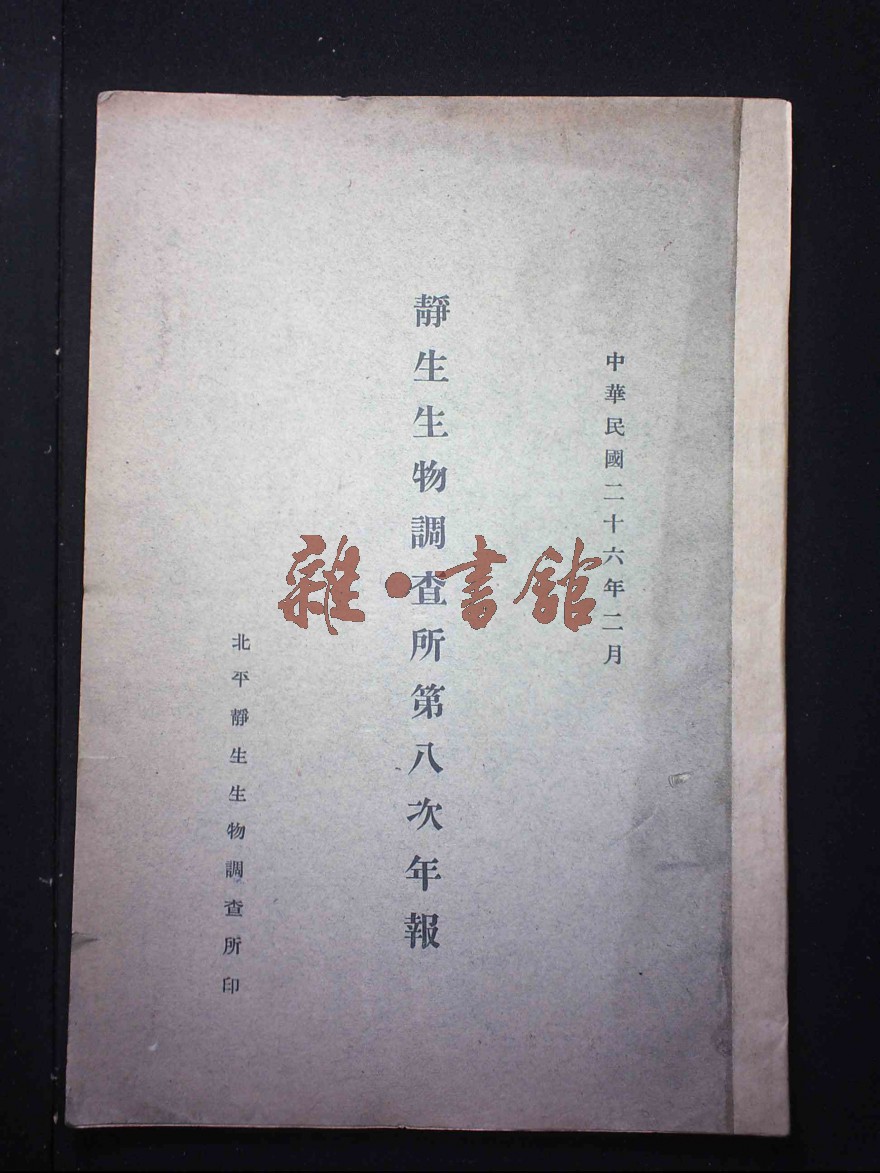 中華民國二十六年二月
靜生生物調查所第八次年報
北平靜生生物調查所印
雜·書館